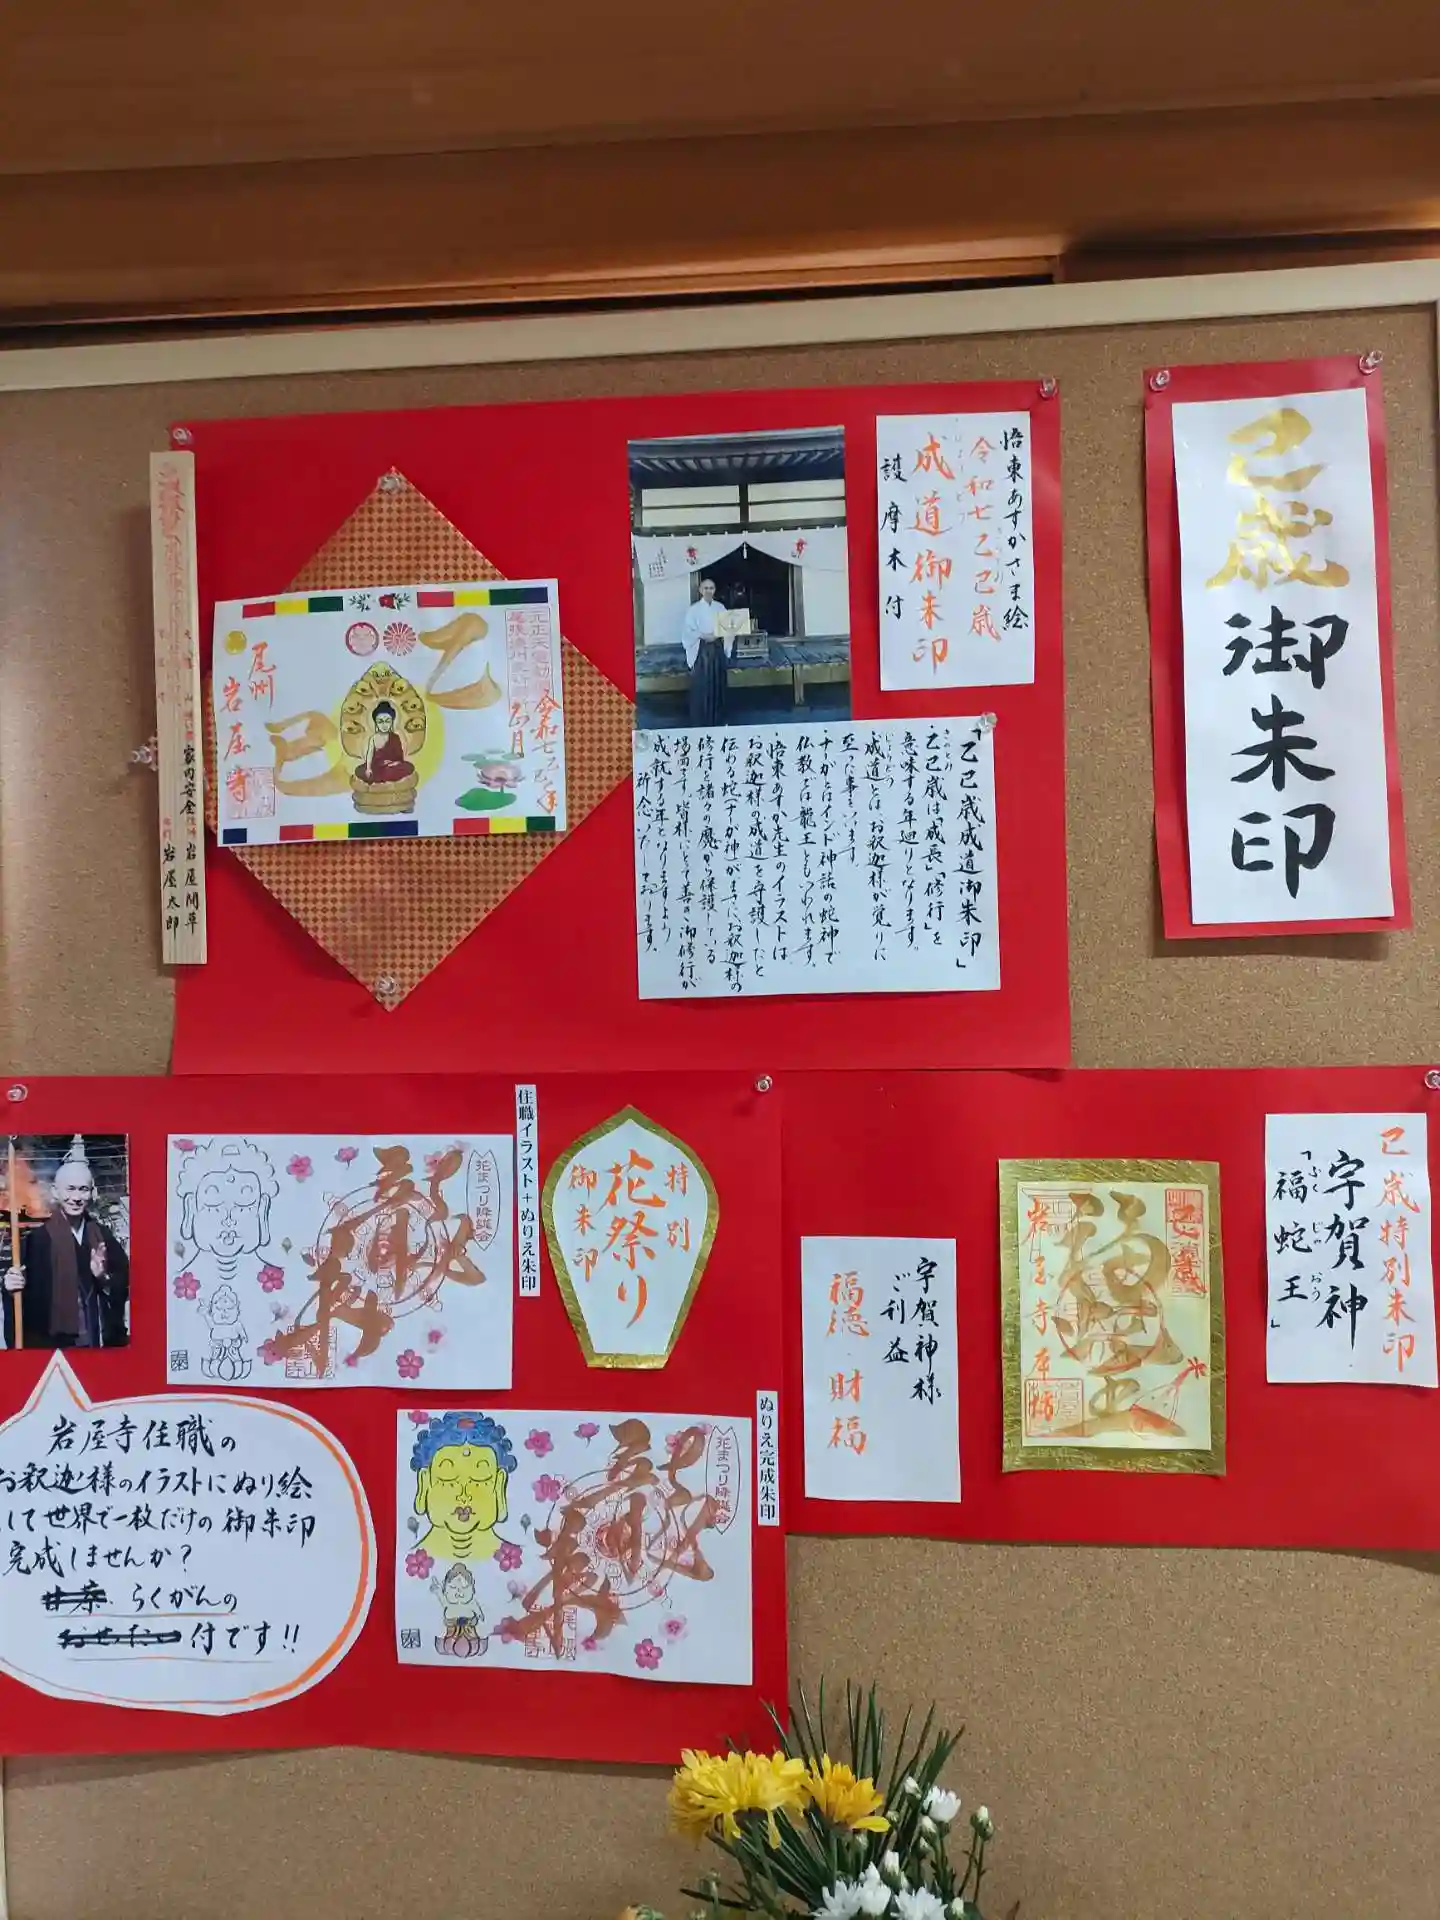 巳歳
御朱印
悟東あすかさま絵
令和七乙巳歳
成道御朱印
護摩木付
「乙巳歳成道御朱印」
・乙巳歳は「成長」「修行」を
意味する年廻りとなります。
成道とは、お釈迦様が覚りに
至った事をいいます。
・ナガとはインド神話の蛇神で
仏教では龍王ともいわれます。
・悟東あすか先生のイラストは
お釈迦様の成道を守護したと
伝める蛇(ナーガ神)がまさにお釈迦様の
修行を諸々の魔から保護している
場面です。皆様にとて善き御修行が
成就する年となりますよう
祈念いたしております。
乙
巳
令和七乙巳年
正月
尾州
岩屋寺
家内安全
岩屋太郎
住職イラスト+ぬりえ朱印
特別
花祭り
御朱印
花まつり降誕会
岩屋寺住職の
お釈迦様のイラストにぬり絵
して世界で一枚だけの御朱印
完成しませんか?
らくがんの
付です!!
ぬりえ完成朱印
花まつり降誕会
巳歳特別朱印
宇賀神
「福蛇王」
ふく じゃ おう
福蛇王
岩屋寺本坊
宇賀神様
ご利益
福徳・財福